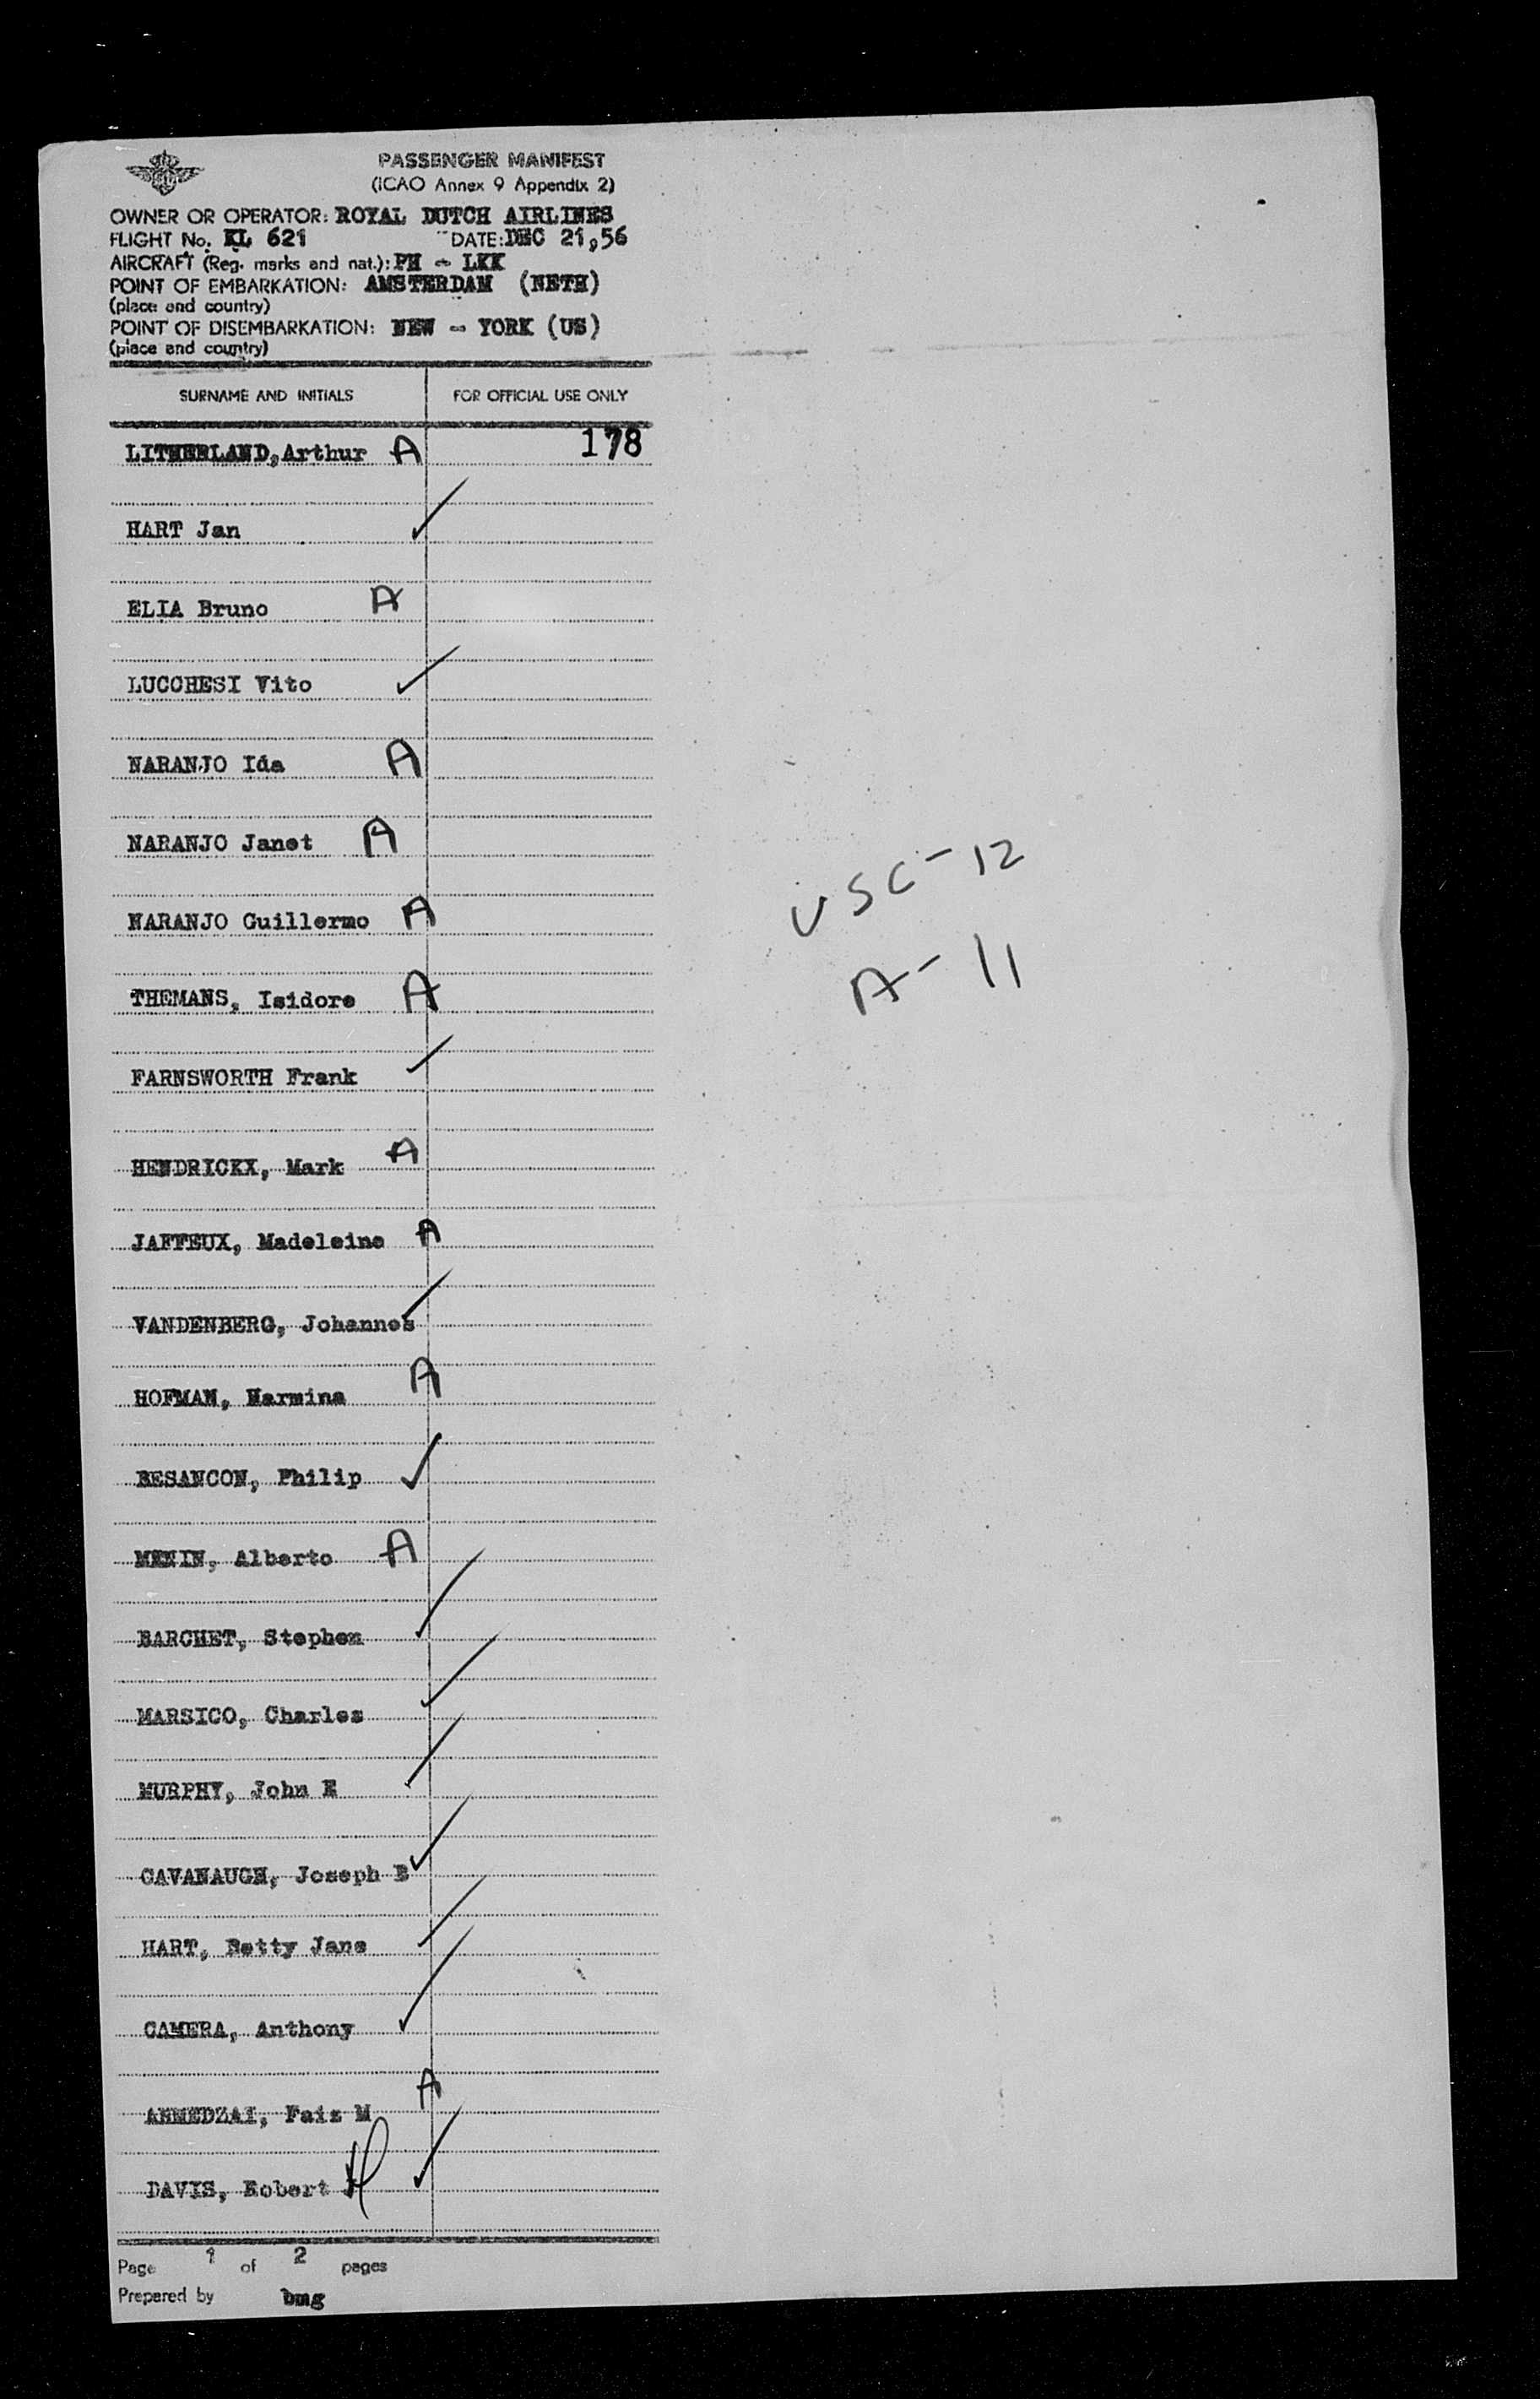 PASSENGER MANIFEST
(ICAO Annex 9 Appendix 2)
OWNER OR OPERATOR: ROYAL DUTCH AIRLINES
FLIGHT No. KL 621 DATE: DEC 21,56
AIRCRAFT (Reg. marks and nat.): PH - LKK
POINT OF EMBARKATION: AMSTERDAM (NETH)
(place and country)
POINT OF DISEMBARKATION: NEW - YORK (US)
(place and country)
SURNAME AND INITIALS FOR OFFICIAL USE ONLY
LITHERLAND, Arthur A 178
HART Jan ✓
ELIA Bruno A
LUCCHESI Vito ✓
NARANJO Ida A
NARANJO Janet A
USC-12
NARANJO Guillermo A
A-11
THEMANS, Isidore A
FARNSWORTH Frank ✓
HENDRICKX, Mark A
JAFFEUX, Madeleine A
VANDENBERG, Johannes ✓
HOFMAN, Harmina A
BESANCON, Philip ✓
MENIN, Alberto A
BARCHET, Stephen ✓
MARSICO, Charles ✓
MURPHY, John E ✓
CAVANAUGH, Joseph B ✓
HART, Betty Jane ✓
CAMERA, Anthony ✓
AHMEDZAI, Faiz M A
DAVIS, Robert ✓
Page 1 of 2 pages
Prepared by bmg